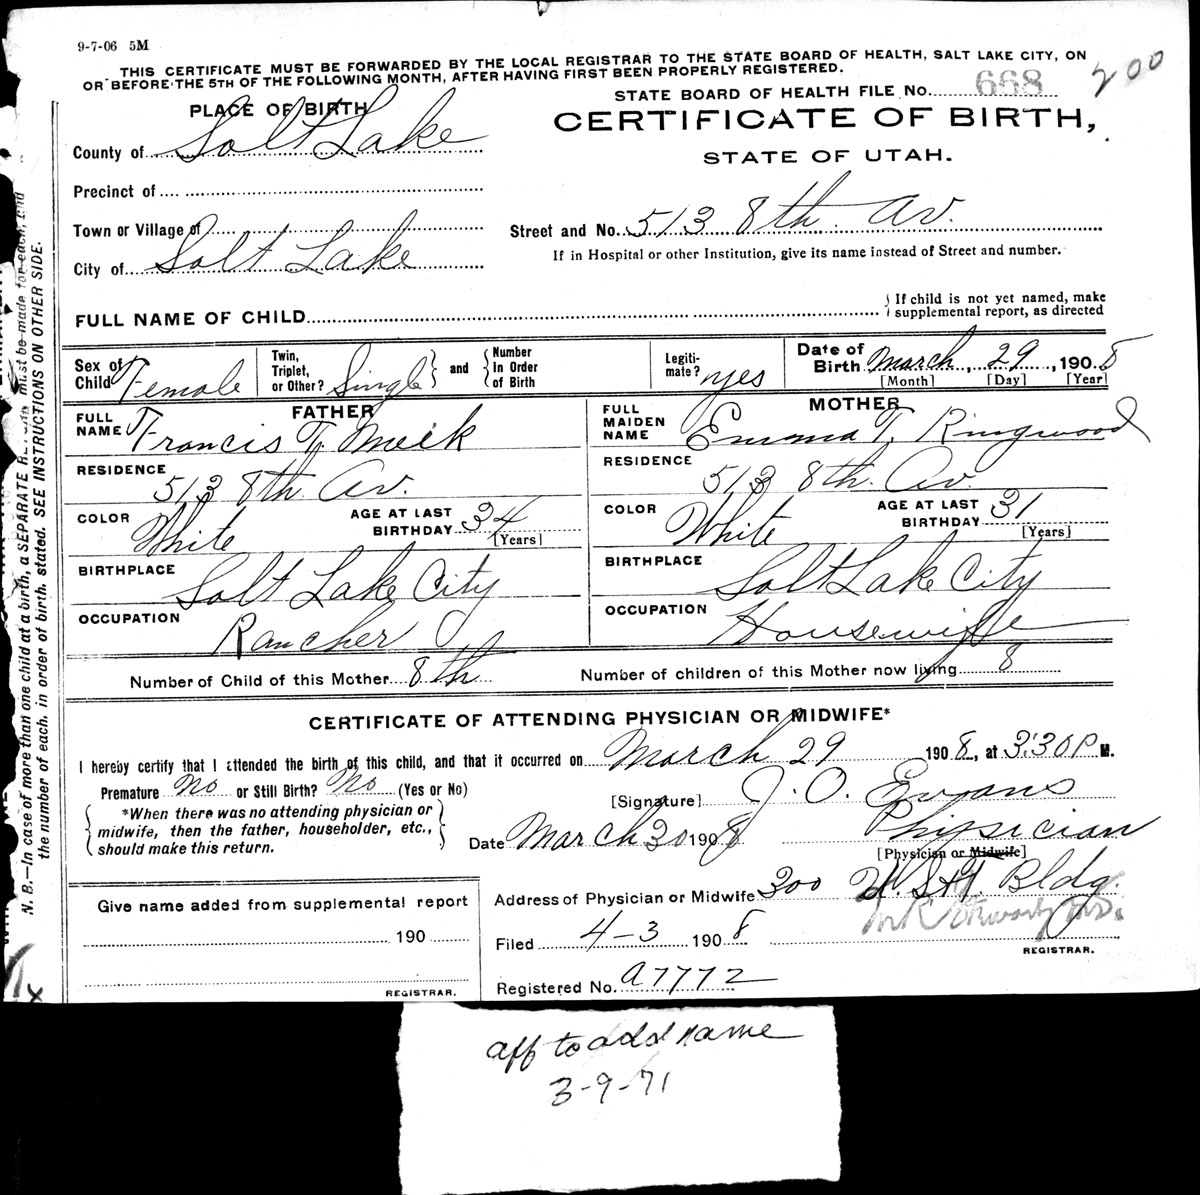 9-7-06 5M
THIS CERTIFICATE MUST BE FORWARDED BY THE LOCAL REGISTRAR TO THE STATE BOARD OF HEALTH, SALT LAKE CITY, ON
OR BEFORE THE 5TH OF THE FOLLOWING MONTH, AFTER HAVING FIRST BEEN PROPERLY REGISTERED.
200
PLACE OF BIRTH
STATE BOARD OF HEALTH FILE NO. 668
CERTIFICATE OF BIRTH,
STATE OF UTAH.
County of Salt Lake
Precinct of
Town or Village of
Street and No. 513 8th Av.
City of Salt Lake
If in Hospital or other Institution, give its name instead of Street and number.
FULL NAME OF CHILD
If child is not yet named, make
supplemental report, as directed
Sex of Child Female
Twin, Triplet, or Other? Single
and
Number In Order of Birth
Legiti-mate? yes
Date of Birth March, 29, 1908
[Month] [Day] [Year]
FATHER
FULL NAME Francis T. Meik
RESIDENCE 513 8th. Av.
COLOR White
AGE AT LAST BIRTHDAY 34
[Years]
BIRTHPLACE Salt Lake City
OCCUPATION Rancher
MOTHER
FULL MAIDEN NAME Emma T. Ringwood
RESIDENCE 513 8th. Av.
COLOR White
AGE AT LAST BIRTHDAY 31
[Years]
BIRTHPLACE Salt Lake City
OCCUPATION Housewife
Number of Child of this Mother 8th
Number of children of this Mother now living 8
CERTIFICATE OF ATTENDING PHYSICIAN OR MIDWIFE*
I hereby certify that I attended the birth of this child, and that it occurred on March 29 1908, at 3:30 P M.
Premature No or Still Birth? No (Yes or No)
[Signature] J. O. Evans
*When there was no attending physician or
midwife, then the father, householder, etc.,
should make this return.
Date March 30 1908
Physician
[Physician or Midwife]
Address of Physician or Midwife 300 Bldg.
Give name added from supplemental report
190
REGISTRAR.
Filed 4-3 1908
REGISTRAR.
Registered No. a7772
N. B.—In case of more than one child at a birth, a SEPARATE must be made for each, and
the number of each, in order of birth, stated. SEE INSTRUCTIONS ON OTHER SIDE.
aff to add name
3-9-71